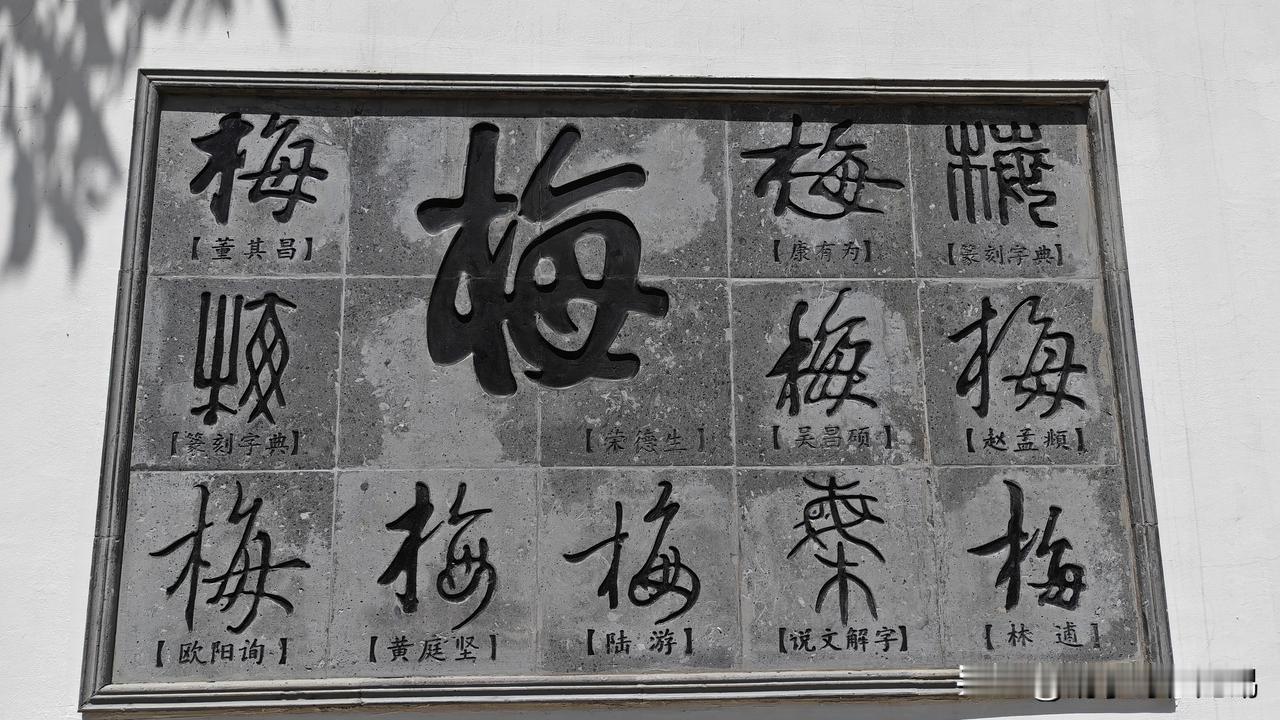 梅 梅 梅 梅
【董其昌】 【康有为】 【篆刻字典】
梅 梅 梅
【篆刻字典】 【荣德生】 【吴昌硕】 【赵孟頫】
梅 梅 梅 梅 梅
【欧阳询】 【黄庭坚】 【陆游】 【说文解字】 【林逋】